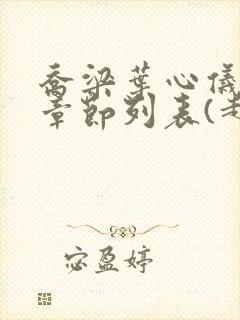 乔梁叶心仪
章节列表(
宓盈婷